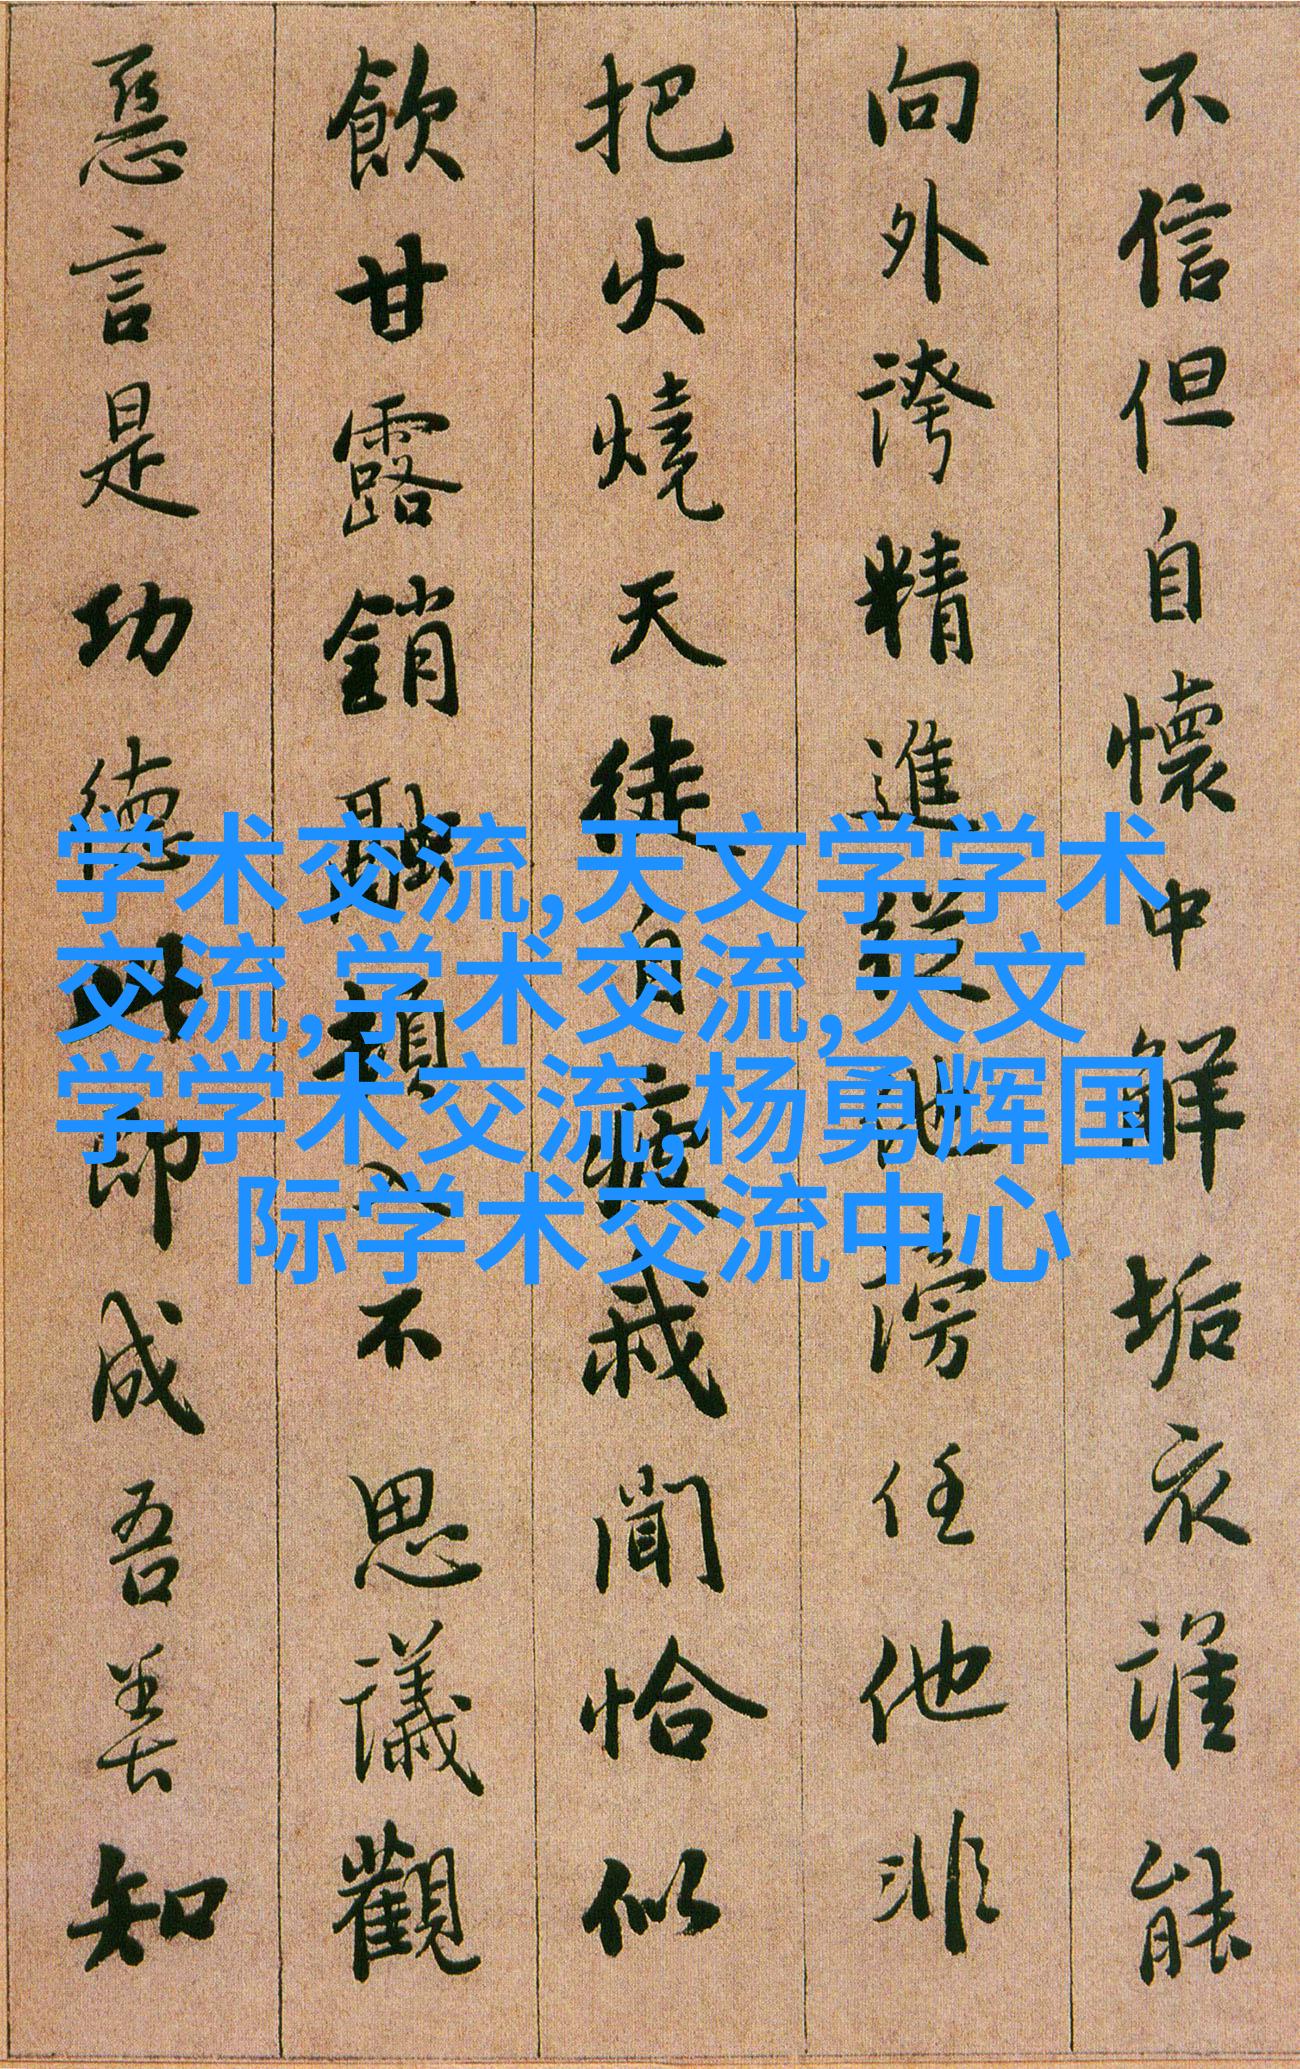 不信但自懷中解垢衣誰能
向外誇精進從他謗任他非
把火燒天徒自疲我聞恰似
飲甘露銷融頓入不思議觀
惡言是功德此即成吾善知
学术交流,天文学学术
交流,学术交流,天文
学学术交流,杨勇辉国
际学术交流中心